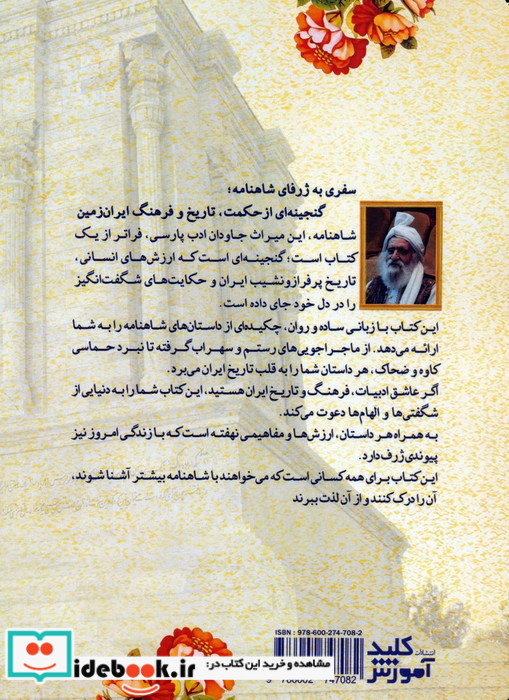 سفری به ژرفای شاهنامه؛
گنجینه‌ای از حکمت، تاریخ و فرهنگ ایران‌زمین
شاهنامه، این میراث جاودان ادب پارسی، فراتر از یک
کتاب است؛ گنجینه‌ای است که ارزش‌های انسانی،
تاریخ پرفراز‌ونشیب ایران و حکایت‌های شگفت‌انگیز
را در دل خود جای داده است.
این کتاب با زبانی ساده و روان، چکیده‌ای از داستان‌های شاهنامه را به شما
ارائه می‌دهد. از ماجراجویی‌های رستم و سهراب گرفته تا نبرد حماسی
کاوه و ضحاک، هر داستان شما را به قلب تاریخ ایران می‌برد.
اگر عاشق ادبیات، فرهنگ و تاریخ ایران هستید، این کتاب شما را به دنیایی از
شگفتی‌ها و الهام‌ها دعوت می‌کند.
به همراه هر داستان، ارزش‌ها و مفاهیمی نهفته است که با زندگی امروز نیز
پیوندی ژرف دارد.
این کتاب برای همه کسانی است که می‌خواهند با شاهنامه بیشتر آشنا شوند،
آن را درک کنند و از آن لذت ببرند
ISBN: 978-600-274-708-2
9 786002 747082
انتشارات
کلید
آموزش
مشاهده و خرید این کتاب در:
idebook.ir